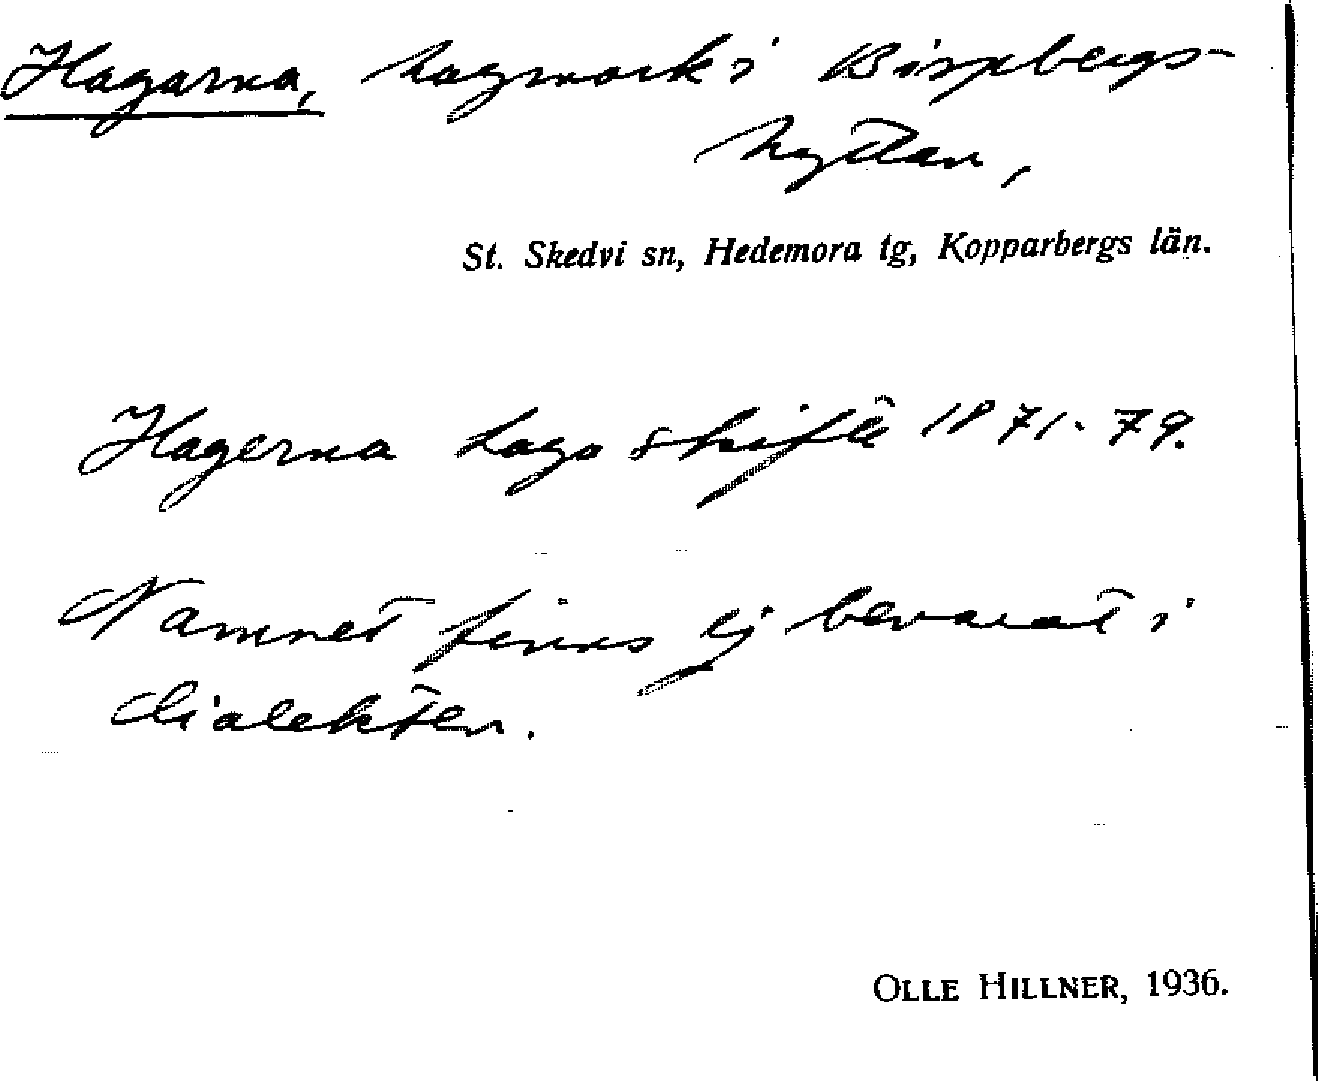 Hagarna, hagmark i Bispbergs-
hyttan,
St. Skedvi sn, Hedemora tg, Kopparbergs län.
Hagerna laga skifte 1871-79.
Namnet finns ej bevarat i
dialekten.
OLLE HILLNER, 1936.